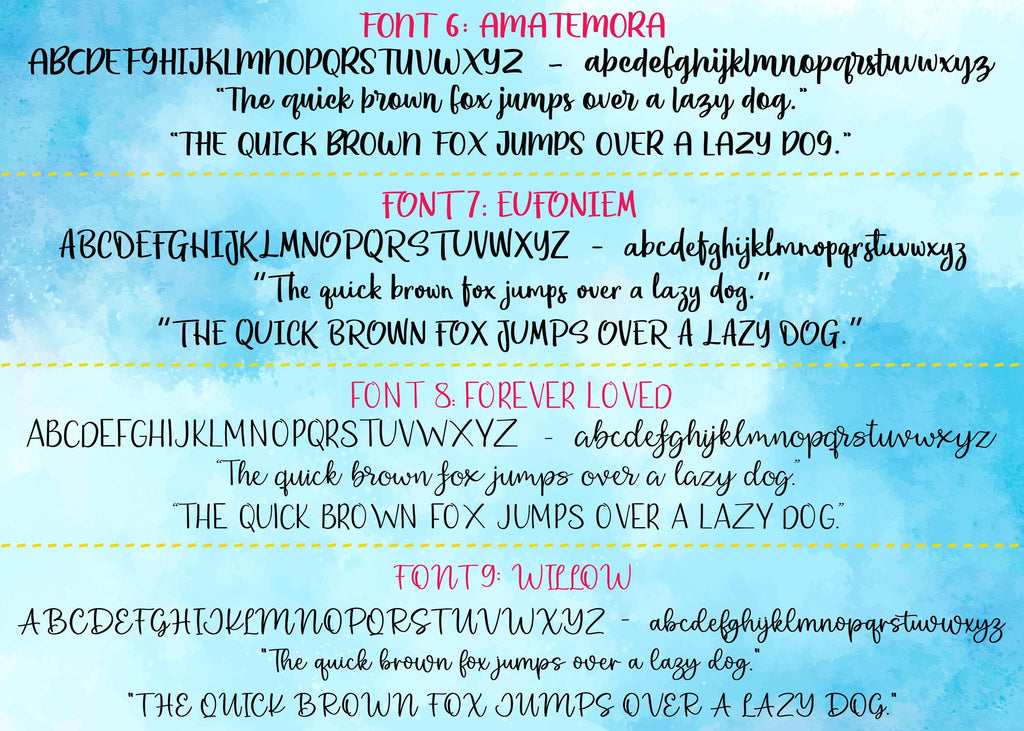 FONT 6: AMATEMORA
ABCDEFGHIJKLMNOPQRSTUVWXYZ - abcdefghijklmnopqrstuvwxyz
"The quick brown fox jumps over a lazy dog."
"THE QUICK BROWN FOX JUMPS OVER A LAZY DOG."
FONT 7: EUFONIEM
ABCDEFGHIJKLMNOPQRSTUVWXYZ - abcdefghijklmnopqrstuvwxyz
“The quick brown fox jumps over a lazy dog.”
“THE QUICK BROWN FOX JUMPS OVER A LAZY DOG.”
FONT 8: FOREVER LOVED
ABCDEFGHIJKLMNOPQRSTUVWXYZ - abcdefghijklmnopqrstuvwxyz
“The quick brown fox jumps over a lazy dog.”
“THE QUICK BROWN FOX JUMPS OVER A LAZY DOG.”
FONT 9: WILLOW
ABCDEFGHIJKLMNOPQRSTUVWXYZ - abcdefghijklmnopqrstuvwxyz
"The quick brown fox jumps over a lazy dog."
"THE QUICK BROWN FOX JUMPS OVER A LAZY DOG."